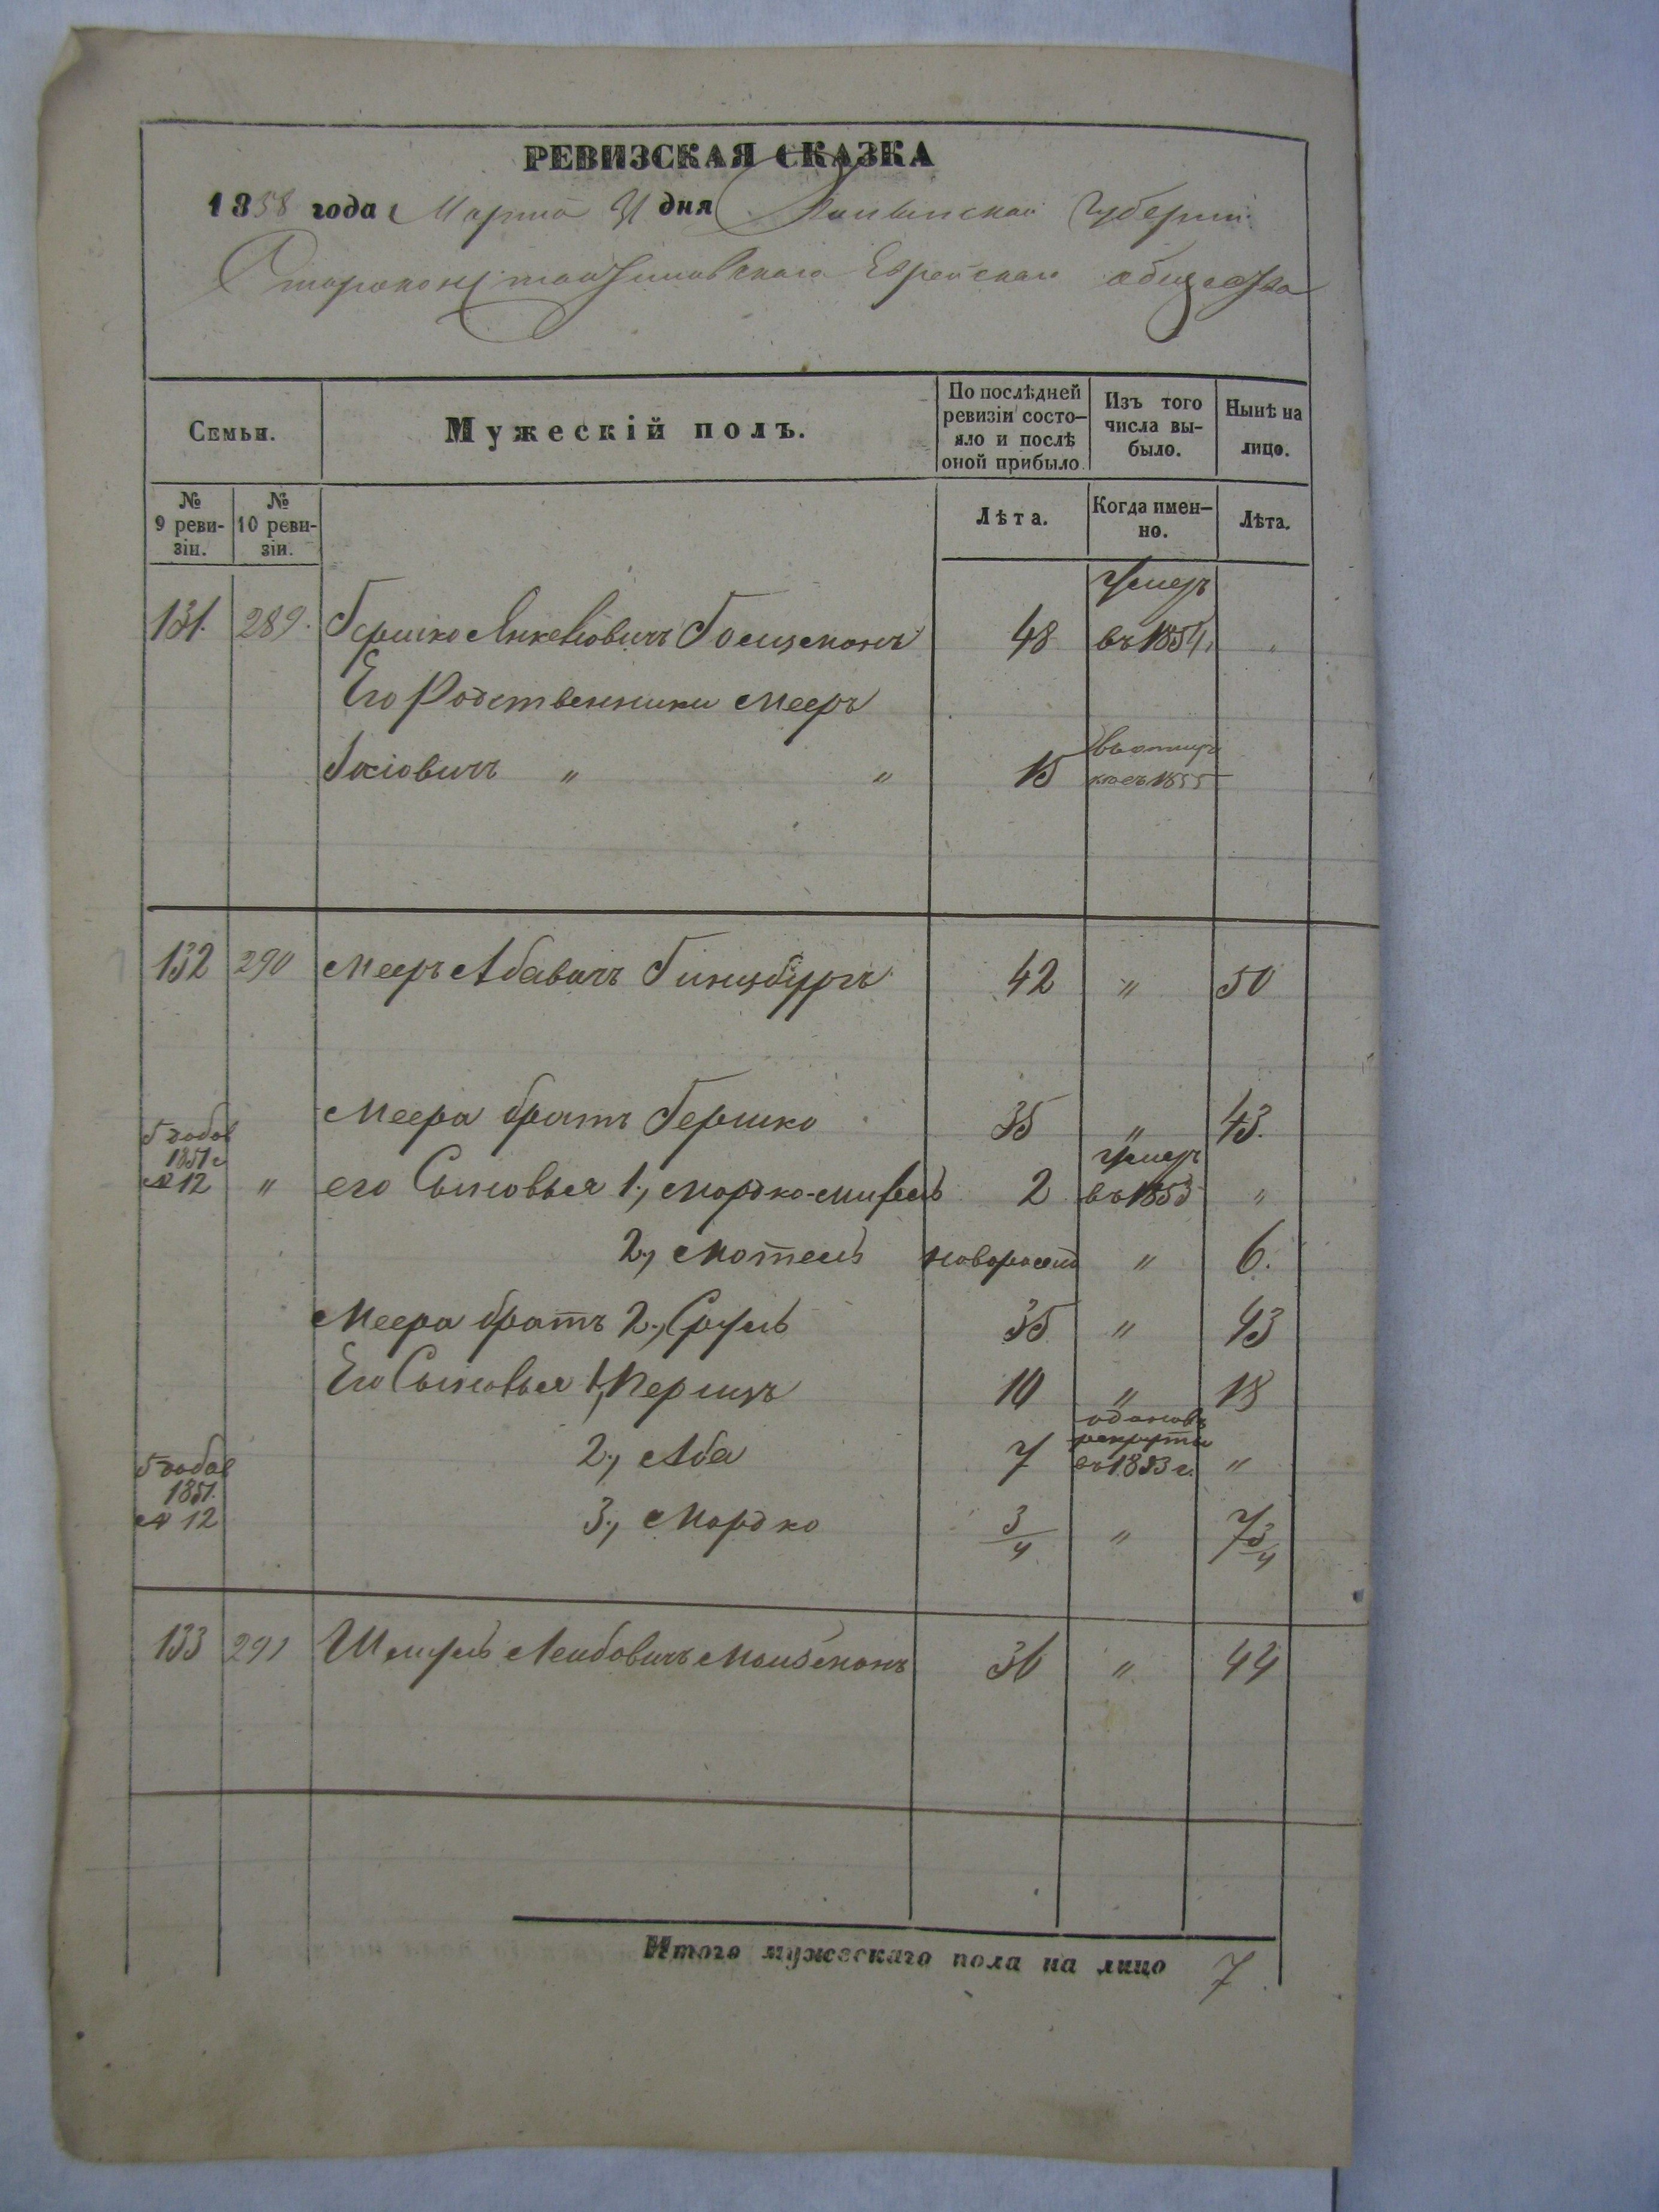 РЕВИЗСКАЯ СКАЗКА
1858 года Марта 31 дня Волынской Губернии
Староконстантиновскаго Еврейскаго общества
Семьи.
Мужескій полъ.
По послѣдней ревизіи состо-
яло и послѣ
оной прибыло.
Изъ того
числа вы-
было.
Нынѣ на
лицо.
№
9 реви-
зіи.
№
10 реви-
зіи.
Лѣта.
Когда имен-
но.
Лѣта.
Умеръ
131. 289. Гершко Янкелiовичъ 48 въ 1854. "
Его Родственники Мееръ
Іосіовичъ " " 15 1855
132 290 Мееръ Абавичъ Гинцбургъ 42 " 50
Меера братъ Гершко 35 " 43.
5 добав
1851 г
№ 12 " его Сыновья 1., Мордко- 2 умеръ въ 1853 "
2., Мотель новорожд " 6.
Меера братъ 2., Сруль 35 " 43
Его Сыновья 1., Перицъ 10 " 18
2., Аба 7 рекруты въ 1853 г. "
5 добав
1851.
№ 12 3., Мордко 3/4 " 7 3/4
133 291 Шмуль Лейбовичъ 36 " 44
Итого мужескаго пола на лицо 7